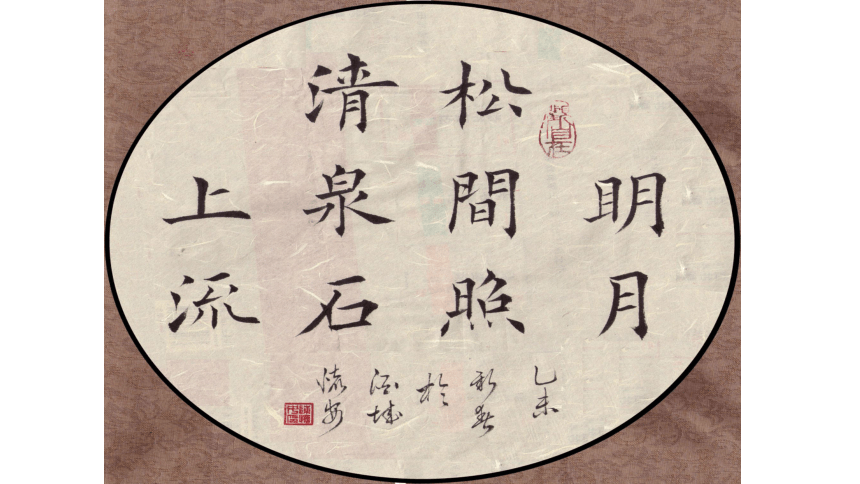 明月
松間照
清泉石
上流
乙未
新春
於
酒城